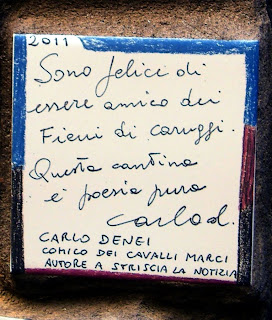 2011
Sono felice di
essere amico dei
Fieui di caruggi.
Questa cantina
è poesia pura
Carlo d.
CARLO DENEI
COMICO DEI CAVALLI MARCI
AUTORE A STRISCIA LA NOTIZIA